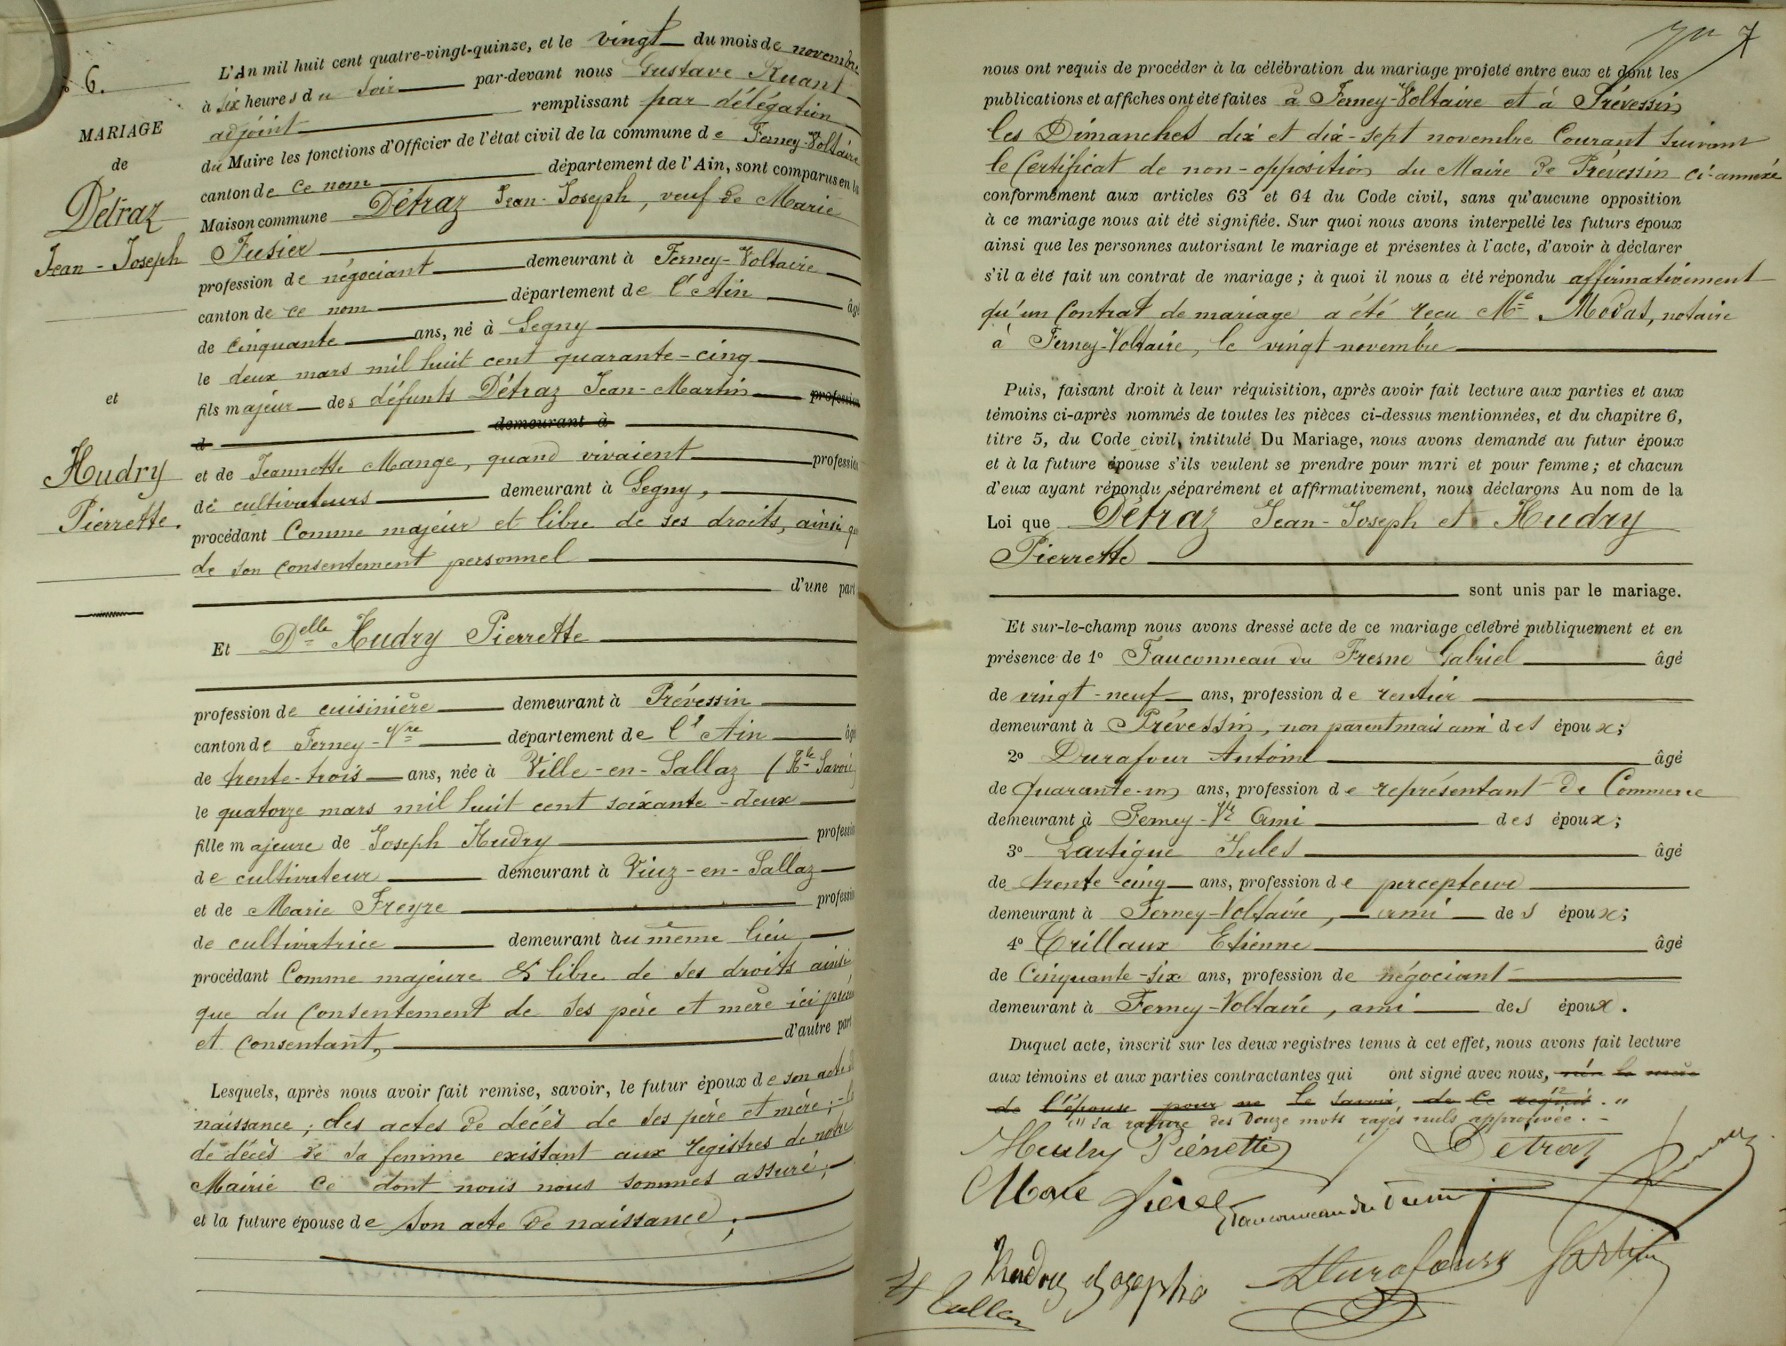 6.
MARIAGE
de
Détraz
Jean-Joseph
et
Hudry
Pierrette.
L'An mil huit cent quatre-vingt-quinze, et le vingt du mois de novembre
à six heures du soir par-devant nous Gustave Ruant
adjoint remplissant par délégation
du Maire les fonctions d'Officier de l'état civil de la commune de Ferney-Voltaire
canton de ce nom département de l'Ain, sont comparus en la
Maison commune Détraz Jean-Joseph, veuf de Marie
Fusier
profession de négociant demeurant à Ferney-Voltaire
canton de ce nom département de l'Ain âgé
de cinquante ans, né à Segny
le deux mars mil huit cent quarante-cinq
fils majeur des défunts Détraz Jean-Martin profession
d demeurant à
et de Jeannette Mange, quand vivaient profession
de cultivateurs demeurant à Segny,
procédant comme majeur et libre de ses droits, ainsi que
de son consentement personnel
d'une part
Et Delle Hudry Pierrette
profession de cuisinière demeurant à Prévessin
canton de Ferney-Vre département de l'Ain âg
de trente-trois ans, née à Ville-en-Sallaz (Hte Savoie
le quatorze mars mil huit cent soixante-deux
fille majeure de Joseph Hudry profession
de cultivateur demeurant à Viuz-en-Sallaz
et de Marie Freyre profession
de cultivatrice demeurant au même lieu
procédant comme majeure & libre de ses droits ainsi
que du consentement de ses père et mère ici
et consentant, d'autre part
Lesquels, après nous avoir fait remise, savoir, le futur époux de son acte de
naissance; des actes de décès de ses père et mère;
de décès de sa femme existant aux registres de notre
Mairie ce dont nous nous sommes assuré;
et la future épouse de son acte de naissance;
7
nous ont requis de procéder à la célébration du mariage projeté entre eux et dont les
publications et affiches ont été faites à Ferney-Voltaire et à Prévessin
les Dimanches dix et dix-sept novembre Courant suivant
le Certificat de non-opposition du Maire de Prévessin ci-annexé
conformément aux articles 63 et 64 du Code civil, sans qu'aucune opposition
à ce mariage nous ait été signifiée. Sur quoi nous avons interpellé les futurs époux
ainsi que les personnes autorisant le mariage et présentes à l'acte, d'avoir à déclarer
s'il a été fait un contrat de mariage; à quoi il nous a été répondu affirmativement
qu'un Contrat de mariage a été reçu Me Modas, notaire
à Ferney-Voltaire, le vingt novembre
Puis, faisant droit à leur réquisition, après avoir fait lecture aux parties et aux
témoins ci-après nommés de toutes les pièces ci-dessus mentionnées, et du chapitre 6,
titre 5, du Code civil, intitulé Du Mariage, nous avons demandé au futur époux
et à la future épouse s'ils veulent se prendre pour mari et pour femme; et chacun
d'eux ayant répondu séparément et affirmativement, nous déclarons Au nom de la
Loi que Détraz Jean-Joseph et Hudry
Pierrette
sont unis par le mariage.
Et sur-le-champ nous avons dressé acte de ce mariage célébré publiquement et en
présence de 1° Fauconneau du Fresne Gabriel âgé
de vingt-neuf ans, profession de rentier
demeurant à Prévessin, non parent mais ami des époux;
2° Durafour Antoine âgé
de quarante-un ans, profession de représentant de Commerce
demeurant à Ferney-Vre Ami des époux;
3° Lartigue Jules âgé
de trente-cinq ans, profession de percepteur
demeurant à Ferney-Voltaire, ami des époux;
4° Trillaux Etienne âgé
de Cinquante-six ans, profession de négociant
demeurant à Ferney-Voltaire, ami des époux.
Duquel acte, inscrit sur les deux registres tenus à cet effet, nous avons fait lecture
aux témoins et aux parties contractantes qui ont signé avec nous,
de l'épouse pour ne le savoir de ce requis."
(1) la rature des douze mots rayés nuls approuvée.
Heudry Piérrette Detraz
Fauconneau du Fresne
Durafour